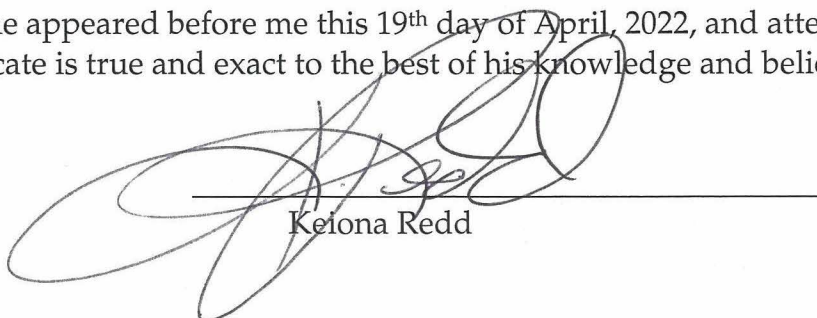 e appeared before me this 19th day of April, 2022, and atte
cate is true and exact to the best of his knowledge and belie
Keiona Redd